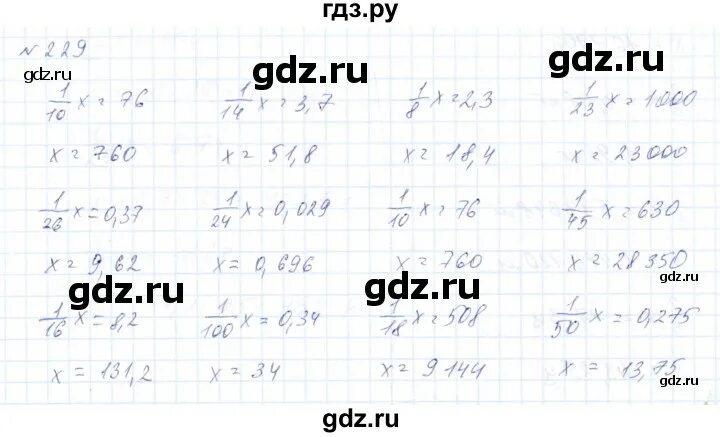 гдз.ру
№229
gdz.ru
1/10 x = 76 1/14 x = 3,7 1/8 x = 2,3 1/23 x = 1000
gdz.ru gdz.ru gdz.ru
x = 760 x = 51,8 x = 18,4 x = 23000
1/26 x = 0,37 1/24 x = 0,029 1/10 x = 76 1/45 x = 630
gdz.ru gdz.ru
x = 9,62 x = 0,696 x = 760 x = 28350
gdz.ru gdz.ru gdz.ru
1/16 x = 8,2 1/100 x = 0,34 1/18 x = 508 1/50 x = 0,275
x = 131,2 x = 34 x = 9144 x = 13,75
gdz.ru
gdz.ru